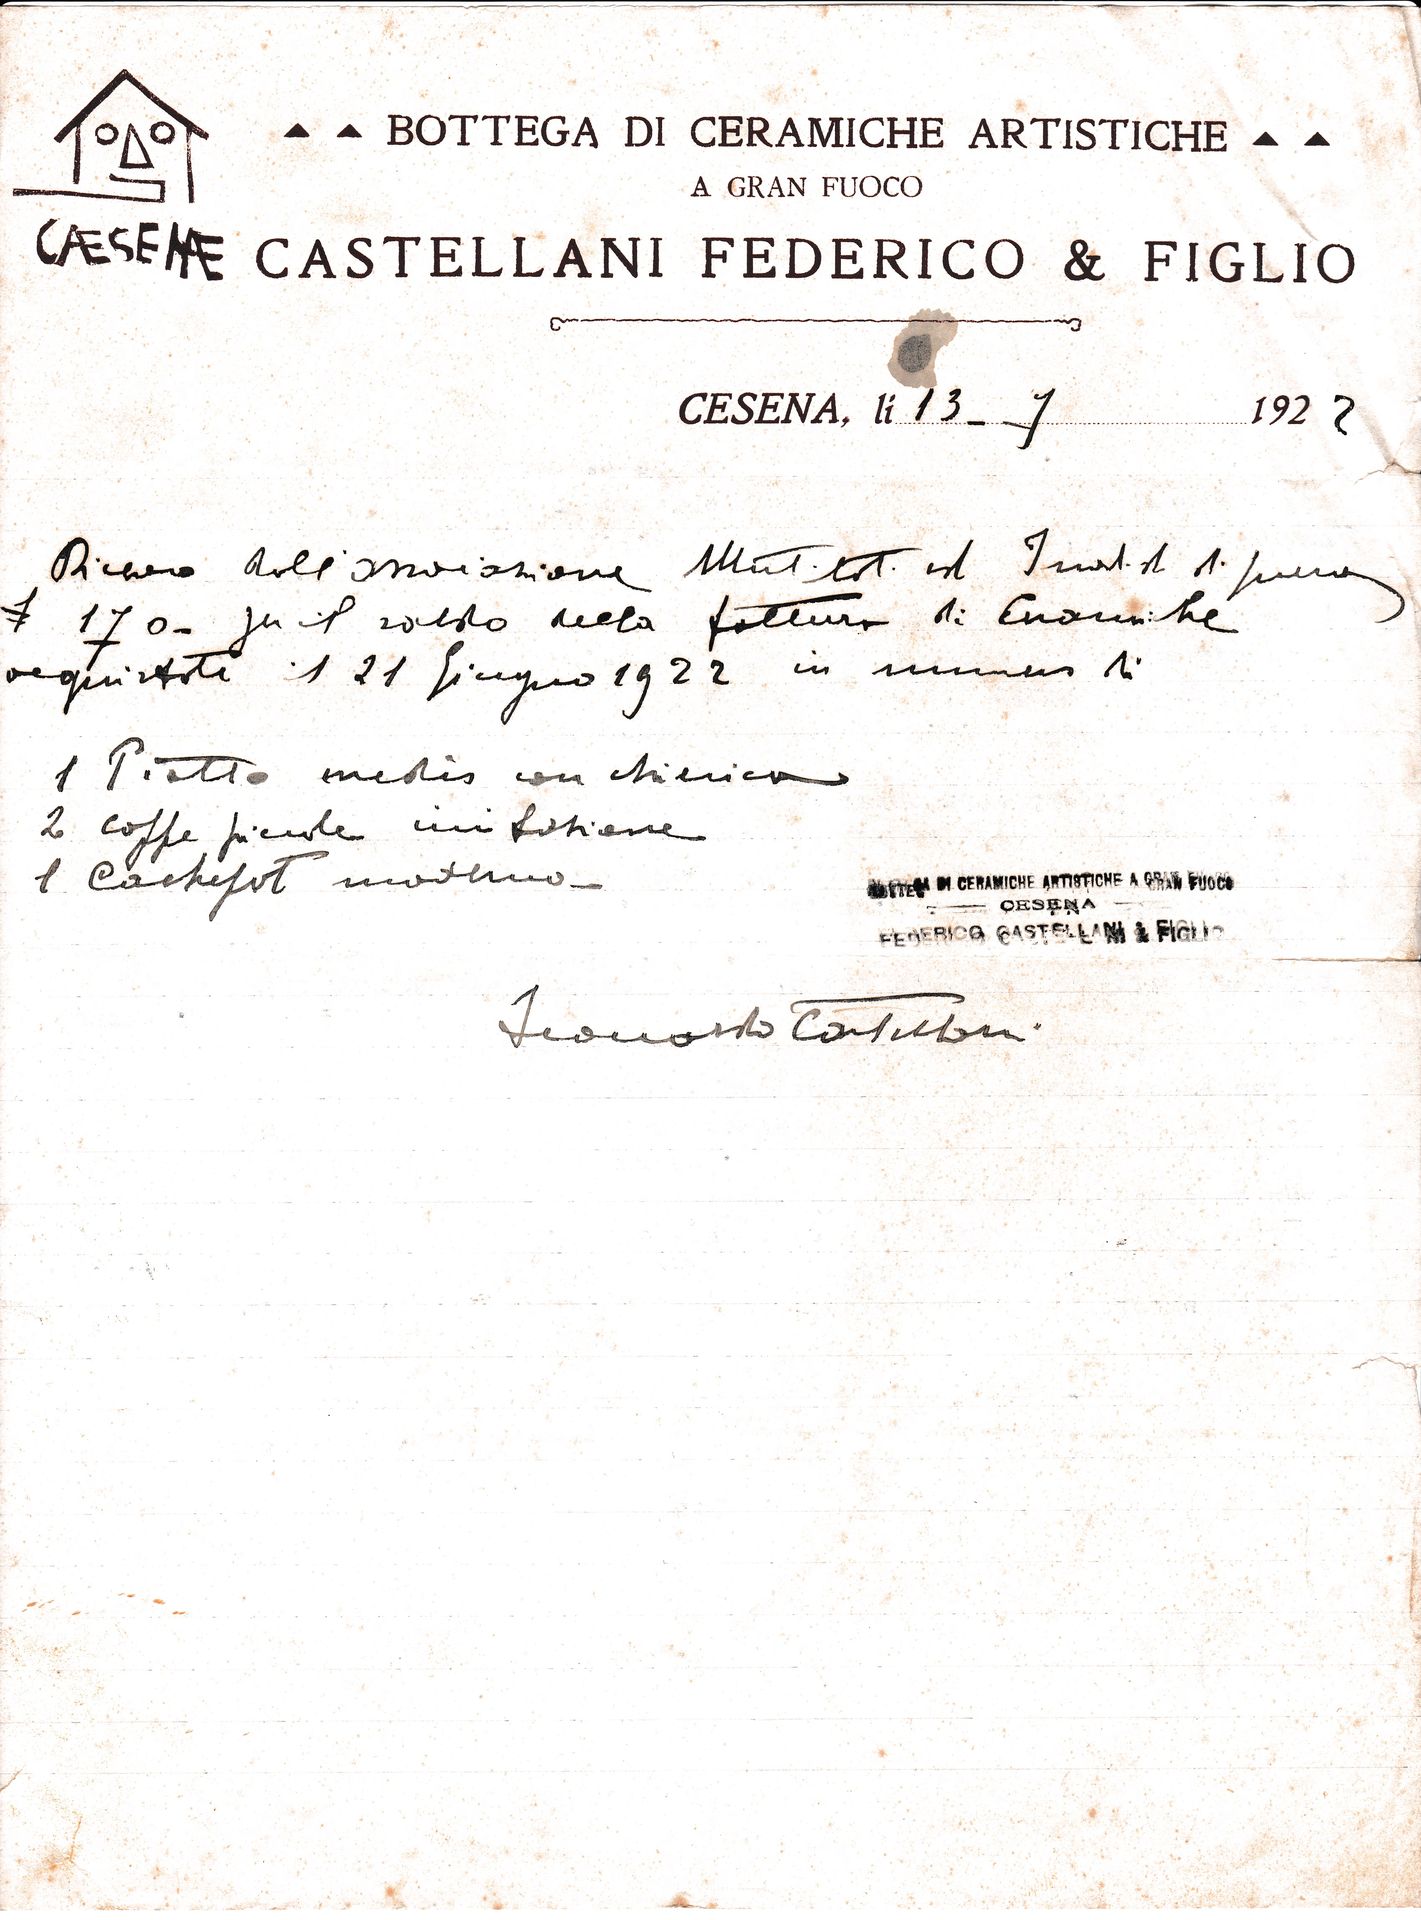 ▲ ▲ BOTTEGA DI CERAMICHE ARTISTICHE ▲ ▲
A GRAN FUOCO
CÆSENÆ CASTELLANI FEDERICO & FIGLIO
CESENA, li 13 - 7 1922
Ricevo dall'associazione Mutilati ed Invalidi di guerra
£ 170 - per il saldo della fattura di Ceramiche
acquistate il 21 Giugno 1922 in numero di
1 Piatto medio con chierica
2 coppe piccole imitazione
1 Cachepot moderno -
BOTTEGA DI CERAMICHE ARTISTICHE A GRAN FUOCO
CESENA
FEDERICO CASTELLANI & FIGLIO
Leonardo Castellani